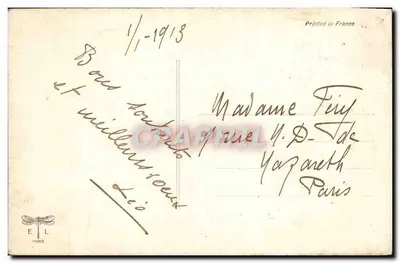 Printed in France
1/1-1913
Bons souhaits
et meilleurs voeux
Léo
Madame Féry
rue N.-D- de
Nazareth
Paris
E L
PARIS